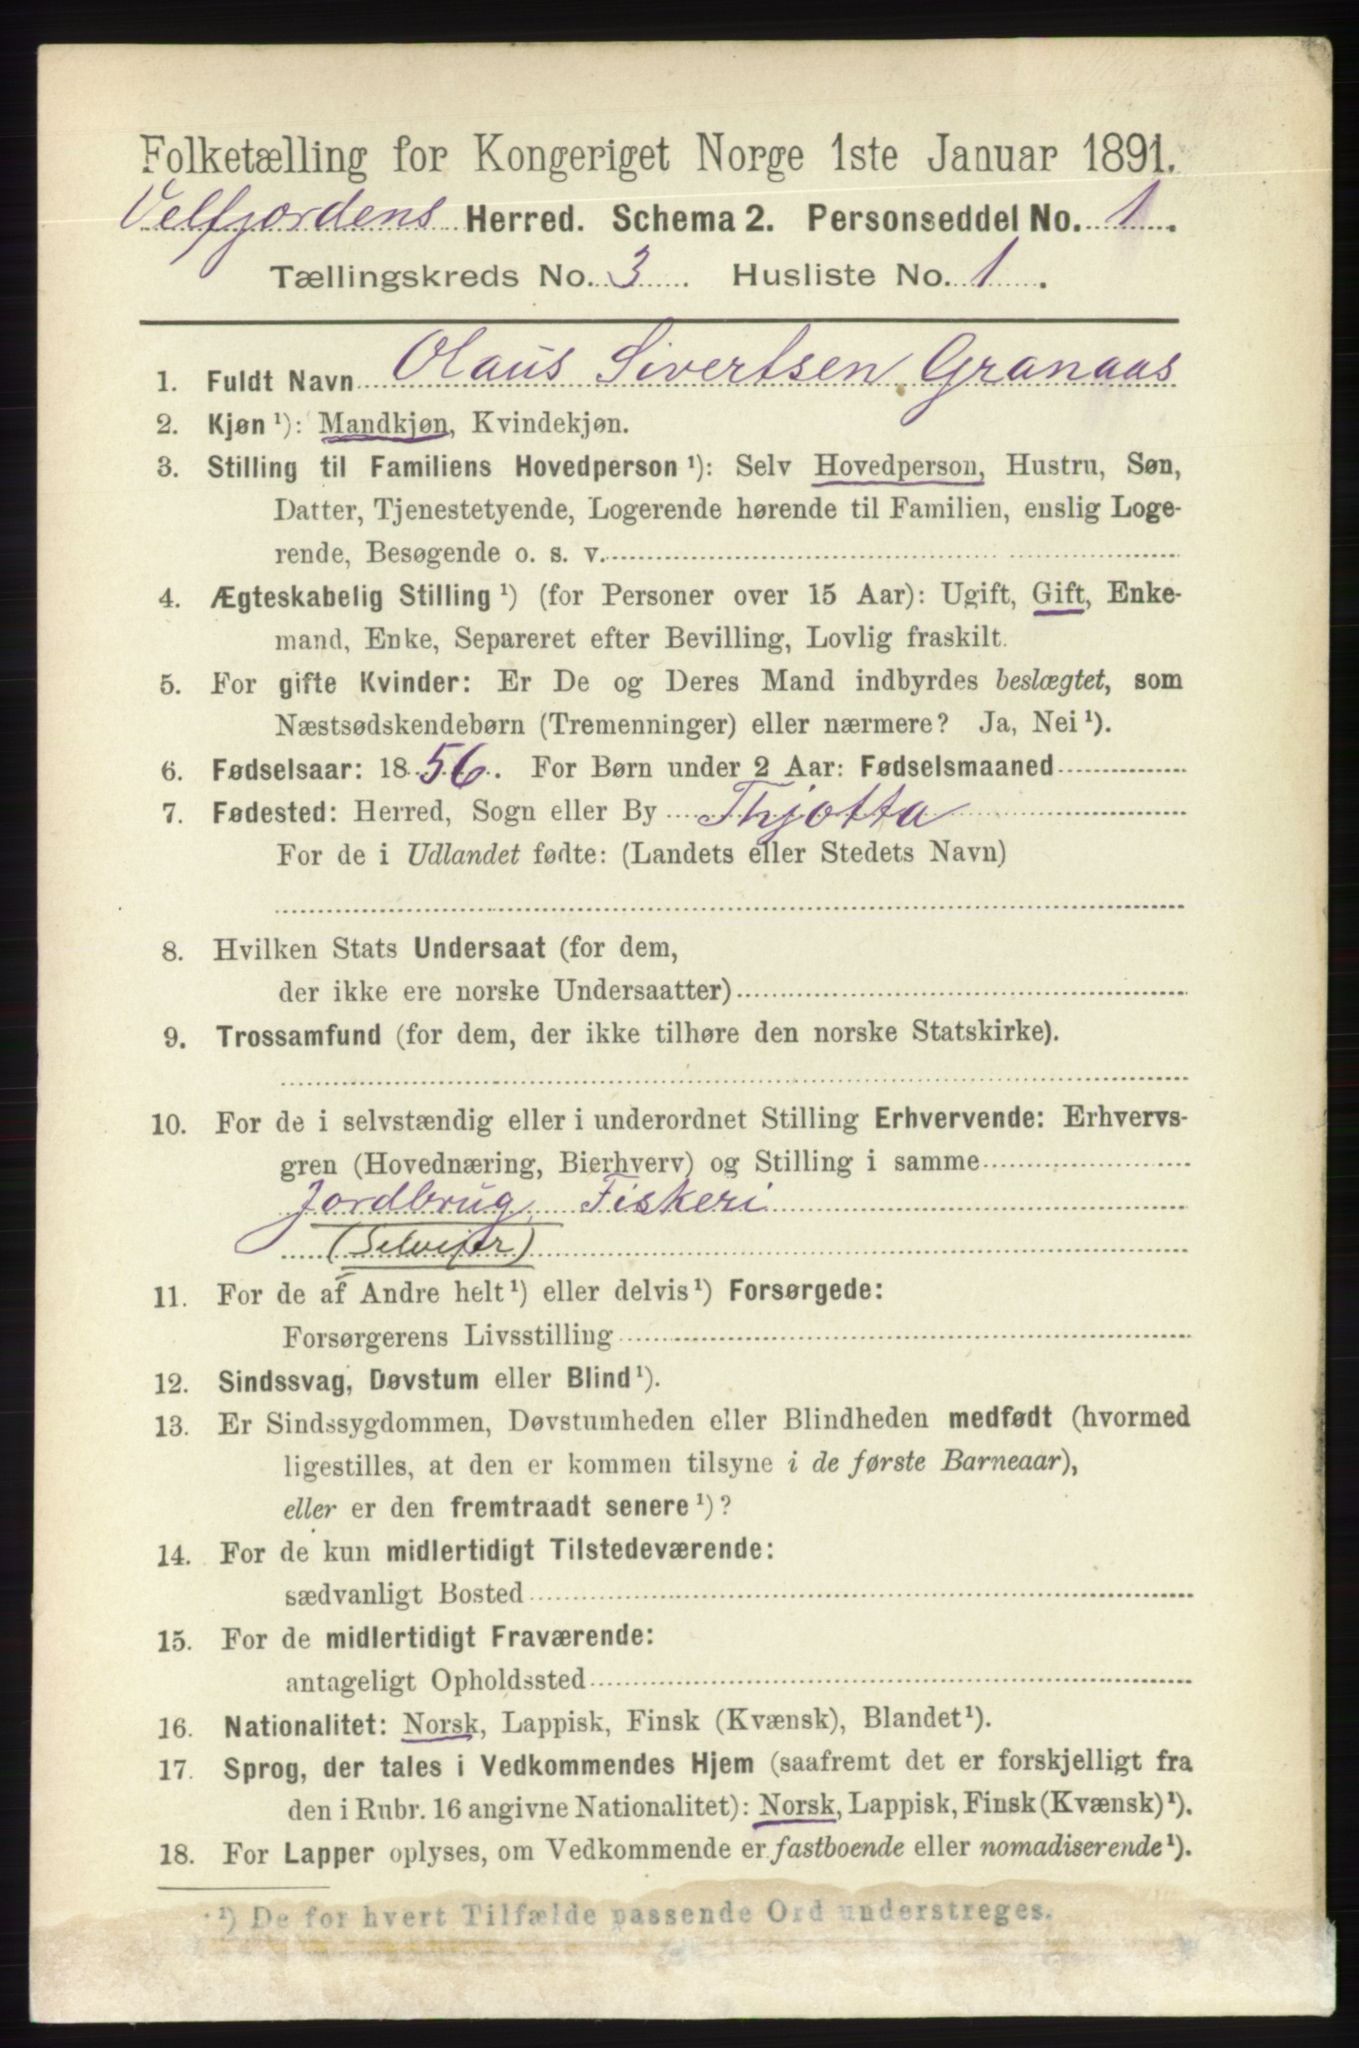 Folketælling for Kongeriget Norge 1ste Januar 1891.
Velfjordens Herred. Schema 2. Personseddel No. 1.
Tællingskreds No. 3. Husliste No. 1.
1. Fuldt Navn Olaus Sivertsen Granaas
2. Kjøn ¹): Mandkjøn, Kvindekjøn.
3. Stilling til Familiens Hovedperson ¹): Selv Hovedperson, Hustru, Søn,
Datter, Tjenestetyende, Logerende hørende til Familien, enslig Loge-
rende, Besøgende o. s. v.
4. Ægteskabelig Stilling ¹) (for Personer over 15 Aar): Ugift, Gift, Enke-
mand, Enke, Separeret efter Bevilling, Lovlig fraskilt.
5. For gifte Kvinder: Er De og Deres Mand indbyrdes beslægtet, som
Næstsødskendebørn (Tremenninger) eller nærmere? Ja, Nei ¹).
6. Fødselsaar: 1856. For Børn under 2 Aar: Fødselsmaaned
7. Fødested: Herred, Sogn eller By Thjotta
For de i Udlandet fødte: (Landets eller Stedets Navn)
8. Hvilken Stats Undersaat (for dem,
der ikke ere norske Undersaatter)
9. Trossamfund (for dem, der ikke tilhøre den norske Statskirke).
10. For de i selvstændig eller i underordnet Stilling Erhvervende: Erhvervs-
gren (Hovednæring, Bierhverv) og Stilling i samme
Jordbrug, Fiskeri
(Selveier)
11. For de af Andre helt ¹) eller delvis ¹) Forsørgede:
Forsørgerens Livsstilling
12. Sindssvag, Døvstum eller Blind ¹).
13. Er Sindssygdommen, Døvstumheden eller Blindheden medfødt (hvormed
ligestilles, at den er kommen tilsyne i de første Barneaar),
eller er den fremtraadt senere ¹)?
14. For de kun midlertidigt Tilstedeværende:
sædvanligt Bosted
15. For de midlertidigt Fraværende:
antageligt Opholdssted
16. Nationalitet: Norsk, Lappisk, Finsk (Kvænsk), Blandet ¹).
17. Sprog, der tales i Vedkommendes Hjem (saafremt det er forskjelligt fra
den i Rubr. 16 angivne Nationalitet): Norsk, Lappisk, Finsk (Kvænsk) ¹).
18. For Lapper oplyses, om Vedkommende er fastboende eller nomadiserende ¹).
¹) De for hvert Tilfælde passende Ord understreges.